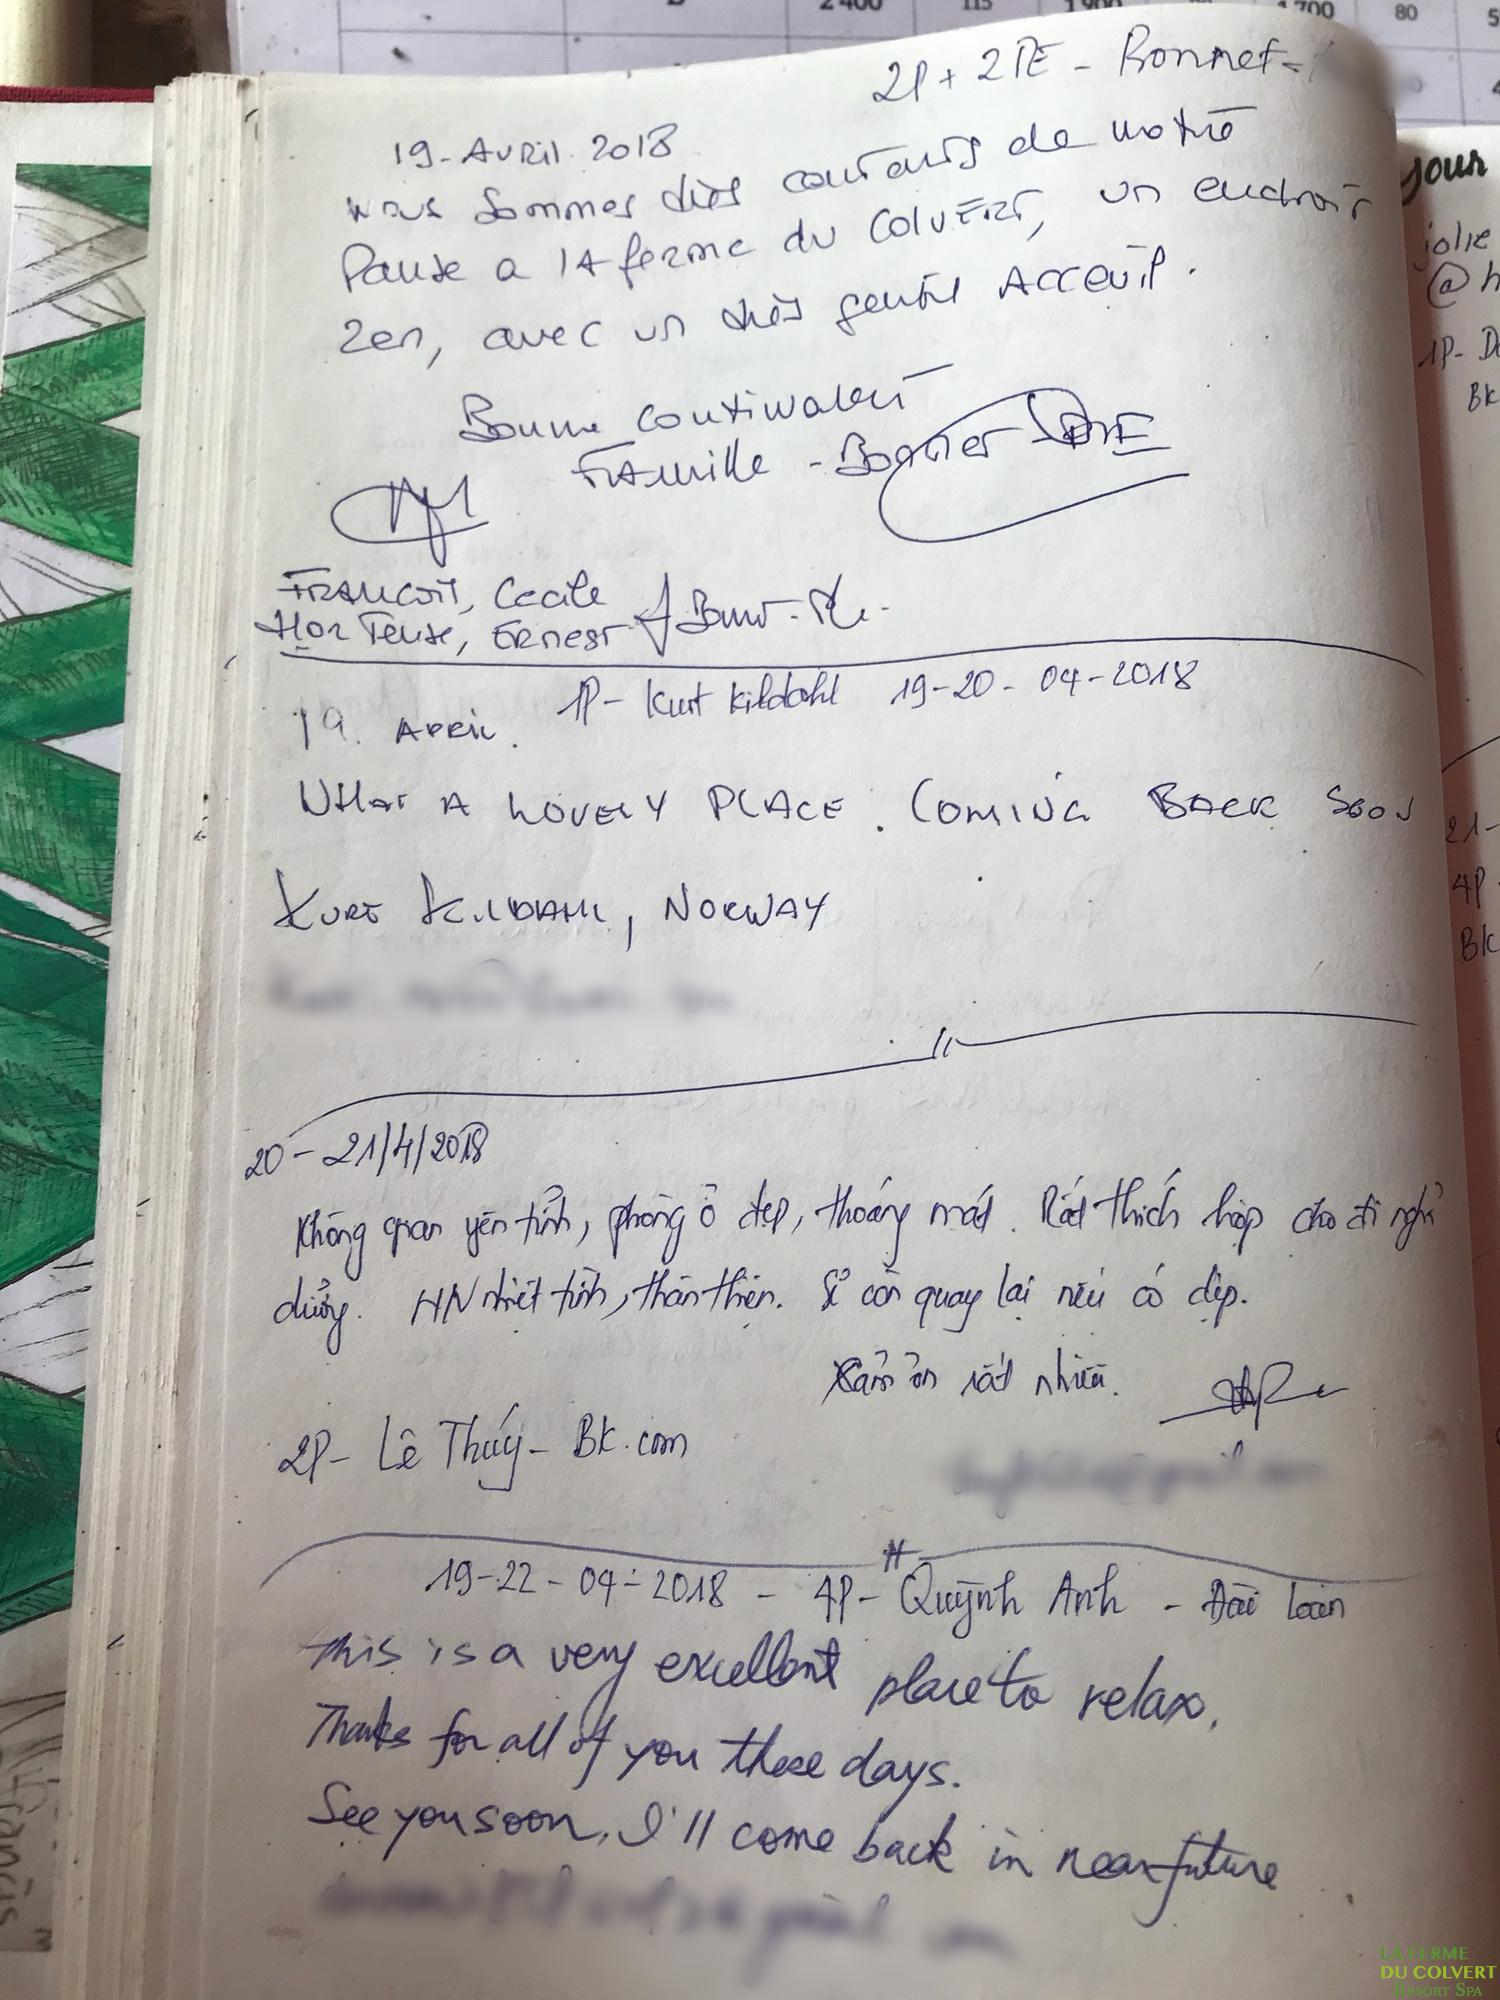 2 400 115 1 900 1 700 80
2P + 2TE - Bonnet -
19 - Avril 2018
Nous sommes très contents de notre
Pause a la ferme du Colvert, un endroit
Zen, avec un très gentil Acceuil.
Bonne continuation
Famille -
Francois, Cecile
Hortense, Ernest
1P - Kurt Kildahl 19-20-04-2018
19. April.
What A Lovely PLACE. COMING BACK SOON
Kurt Kildahl, NORWAY
20 - 21/4/2018
Không gian yên tĩnh, phòng ở đẹp, thoáng mát. Rất thích hợp cho đi nghỉ
dưỡng. HN nhiệt tình, thân thiện. Sẽ còn quay lại nếu có dịp.
Cảm ơn rất nhiều.
2P - Lê Thúy - Bk.com
19-22-04-2018 - 4P - Quỳnh Anh - Đài Loan
This is a very excellent place to relax.
Thanks for all of you these days.
See you soon, I'll come back in near future
your
jolie
@ h
1P-
BK
21-
4P
BK
LA FERME
DU COLVERT
RESORT SPA